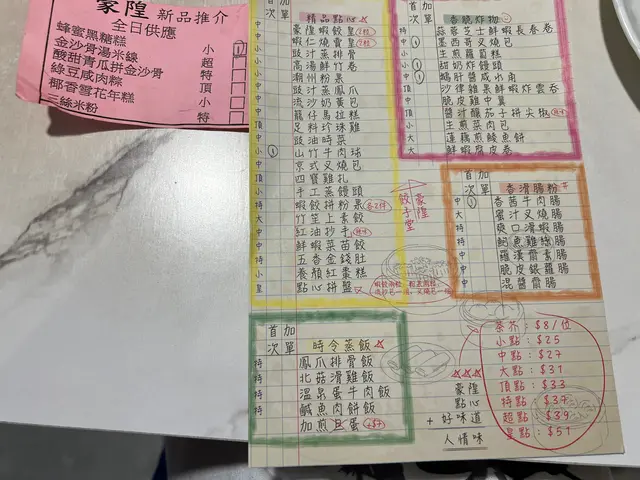 豪隍 新品推介
全日供應
蜂蜜黑糖糕 小 ①
金沙骨湯米線 超
酸甜青瓜拼金沙骨 特
綠豆咸肉粽 頂
椰香雪花年糕 小
三絲米粉 特
首加
次單 精品點心
中 豪隍蝦餃皇
中 蝦仁燒賣皇
小 豉汁蒸排骨
小 高湯鮮竹卷
小 潮州粉果
中 豉汁蒸鳳爪
中 流沙奶黃包
小 籠仔馬拉糕
頂 足料珍珠雞
中 豉油時菜
小 ① 山竹牛肉球
中 京式叉燒包
頂 四寶雞扎
小 手工蒸饅頭
特 蝦餃拼粉果 各2件
大 竹笙上素餃
中 紅油抄手
中 鮮蝦菜苗餃
特 五香金錢肚
小 養顏紅棗糕
皇 點心拼盤
首加
次單 香脆炸物
蒜蓉芝士鮮蝦長春卷
① 墨西哥叉燒包
生煎蘿蔔糕
① 甜奶炸饅頭
① 鵝肝醬咸水角
沙律雜果鮮蝦炸雲吞
脆皮雞中翼
醬汁釀茄子拼尖椒
小 生煎菜肉包
大 蓮藕煎鯪魚餅
大 鮮蝦腐皮卷
首加
次單 香滑腸粉
中 ① 香茜牛肉腸
大 蜜汁叉燒腸
特 爽口滑蝦腸
特 魚雞絲腸
中 羅漢齋素腸
中 脆皮銀蘿腸
中 混醬齋腸
豪隍
餃子堂
首加
次單 時令蒸飯
特 鳳爪排骨飯
特 北菇滑雞飯
特 溫泉蛋牛肉飯
特 鹹魚肉餅飯
加煎旦蛋 +$7
豪隍
點心
+ 好味道
人情味
茶芥: $8/位
小點: $25
中點: $27
大點: $31
頂點: $33
特點: $37
超點: $39
皇點: $51